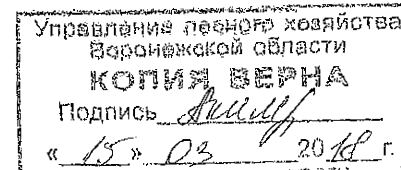 Управления лесного хозяйства
Воронежской области
КОПИЯ ВЕРНА
Подпись
« 15 » 03 2018 г.